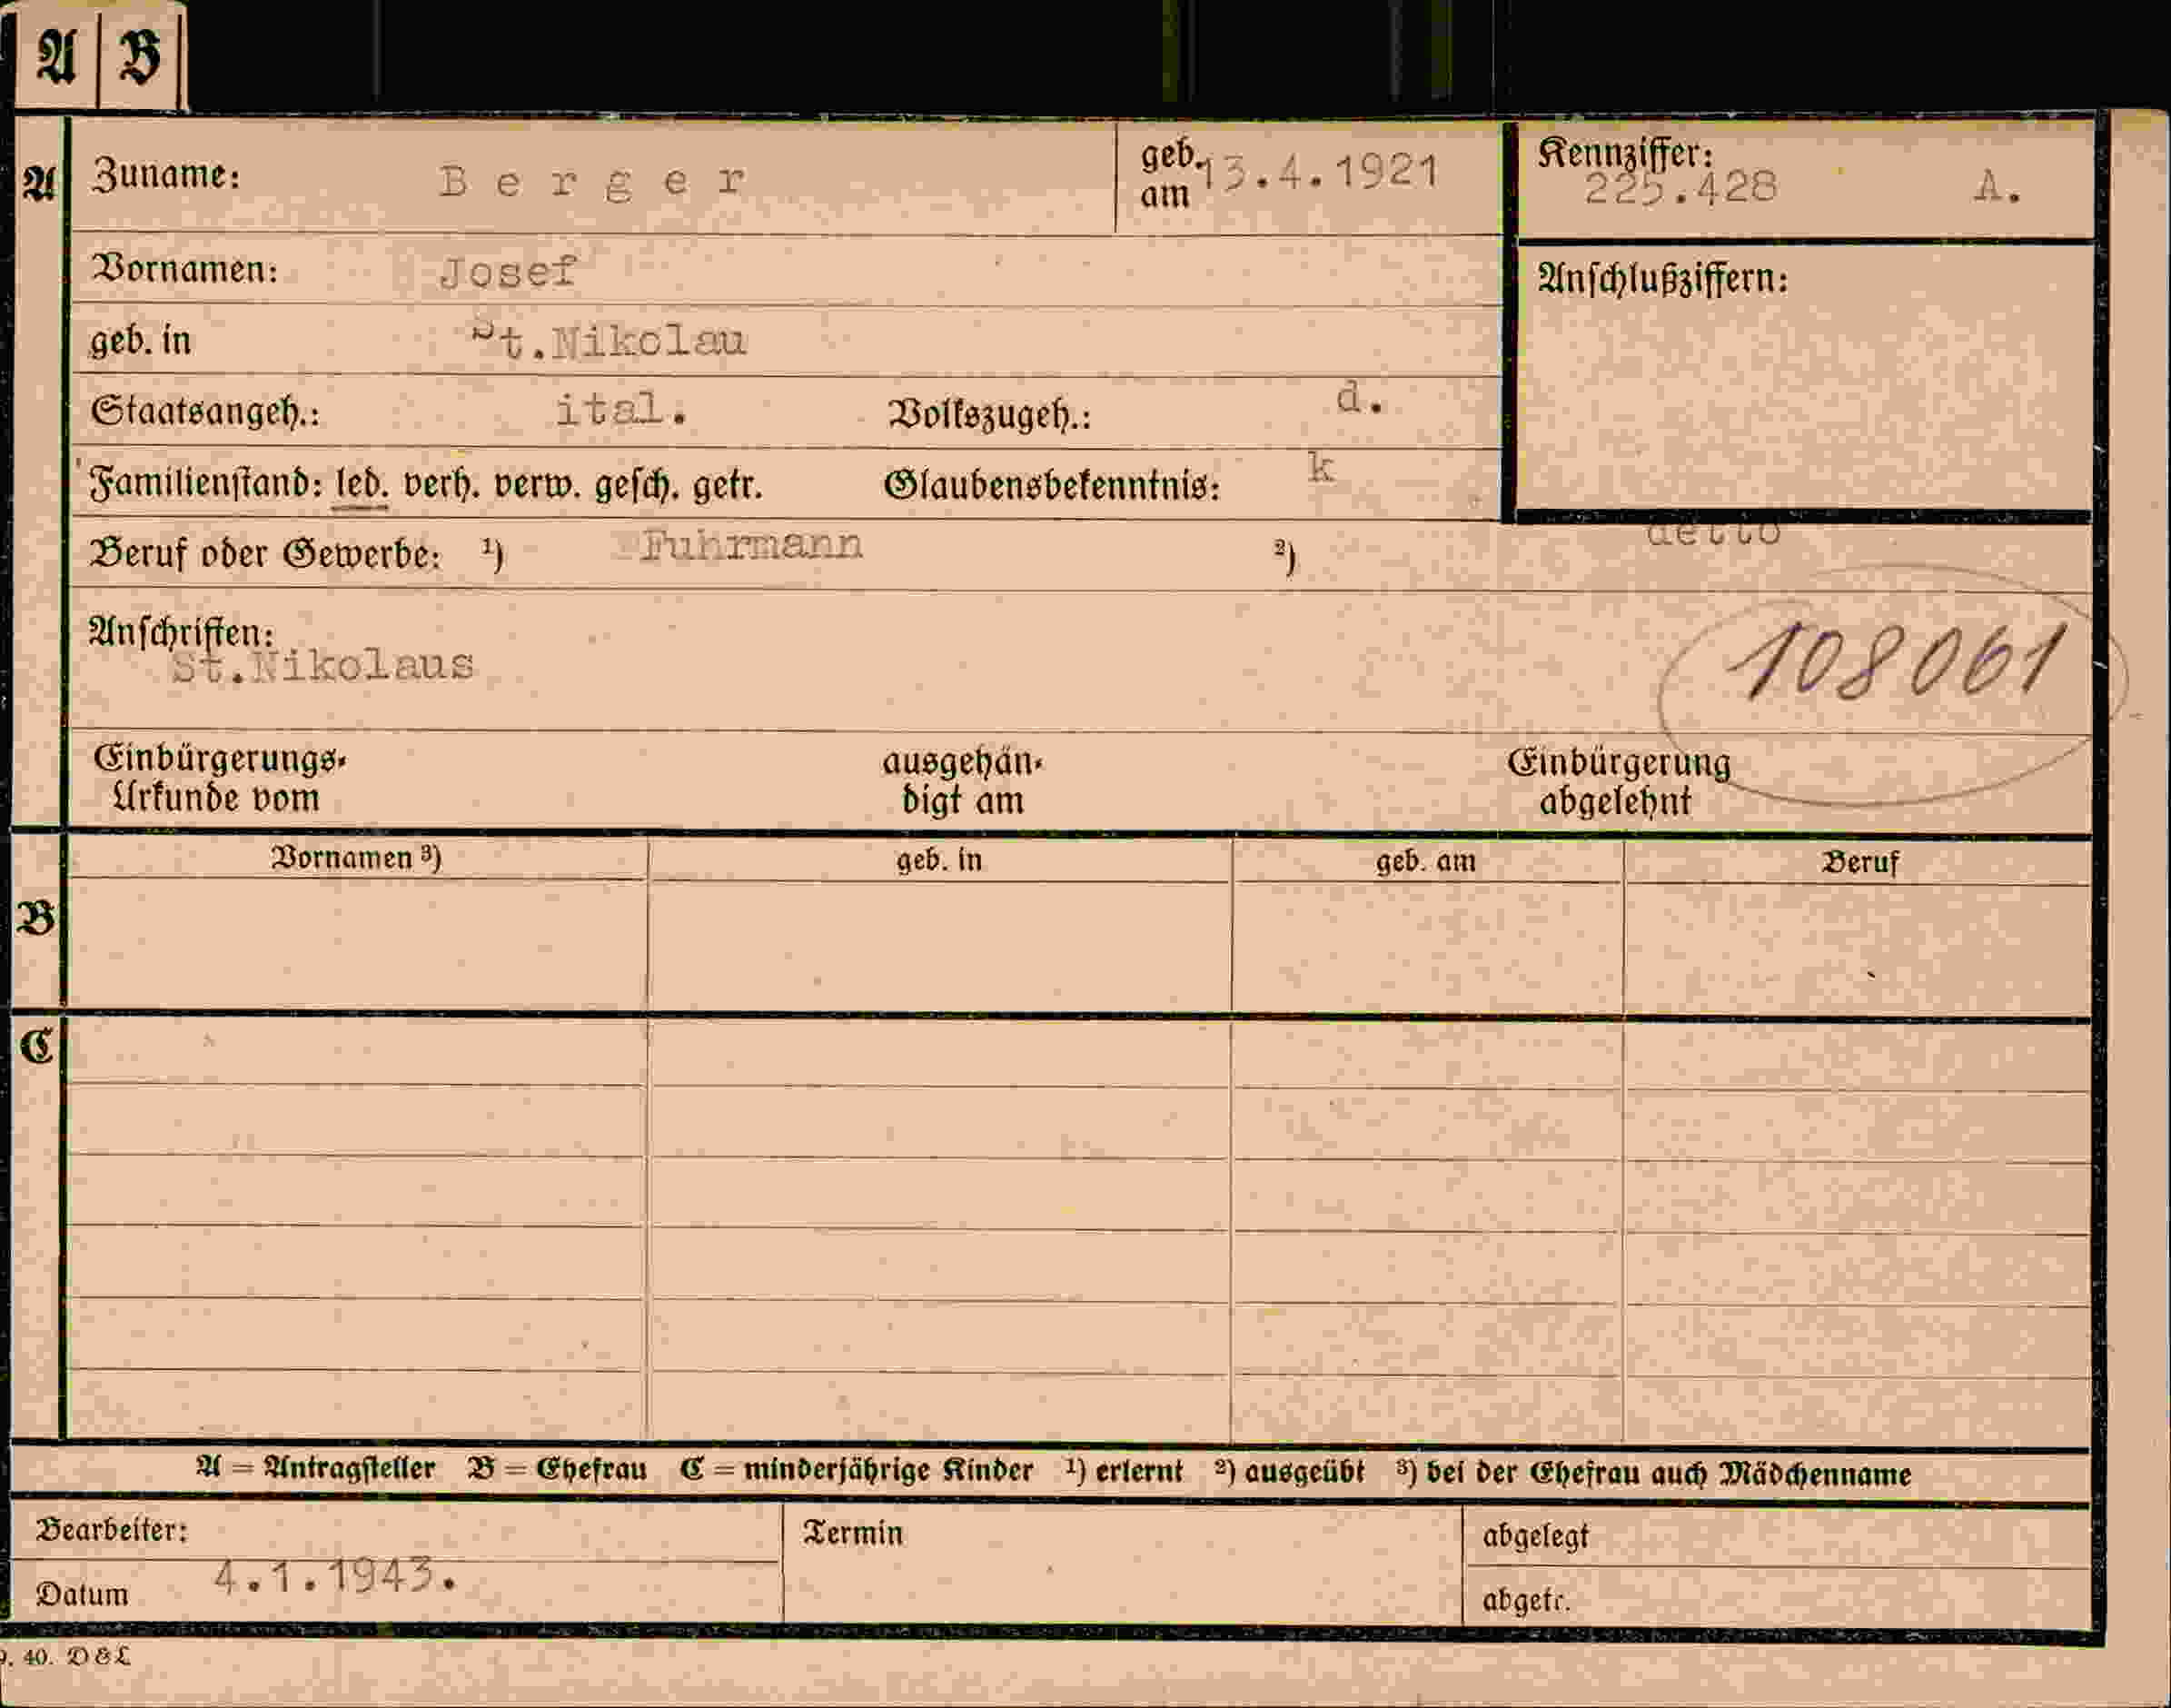 A B
A Zuname: Berger geb. am 13.4.1921 Kennziffer: 225.428 A.
Vornamen: Josef Anschlußziffern:
geb. in St.Nikolau
Staatsangeh.: ital. Volkszugeh.: d.
Familienstand: led. verh. verw. gesch. getr. Glaubensbekenntnis: k
Beruf oder Gewerbe: ¹) Fuhrmann ²) detto
Anschriften:
St.Nikolaus 108061
Einbürgerungs- ausgehän- Einbürgerung
Urkunde vom digt am abgelehnt
B Vornamen ³) geb. in geb. am Beruf
C
A = Antragsteller B = Ehefrau C = minderjährige Kinder ¹) erlernt ²) ausgeübt ³) bei der Ehefrau auch Mädchenname
Bearbeiter: Termin abgelegt
Datum 4.1.1943. abgetr.
9. 40. D & L